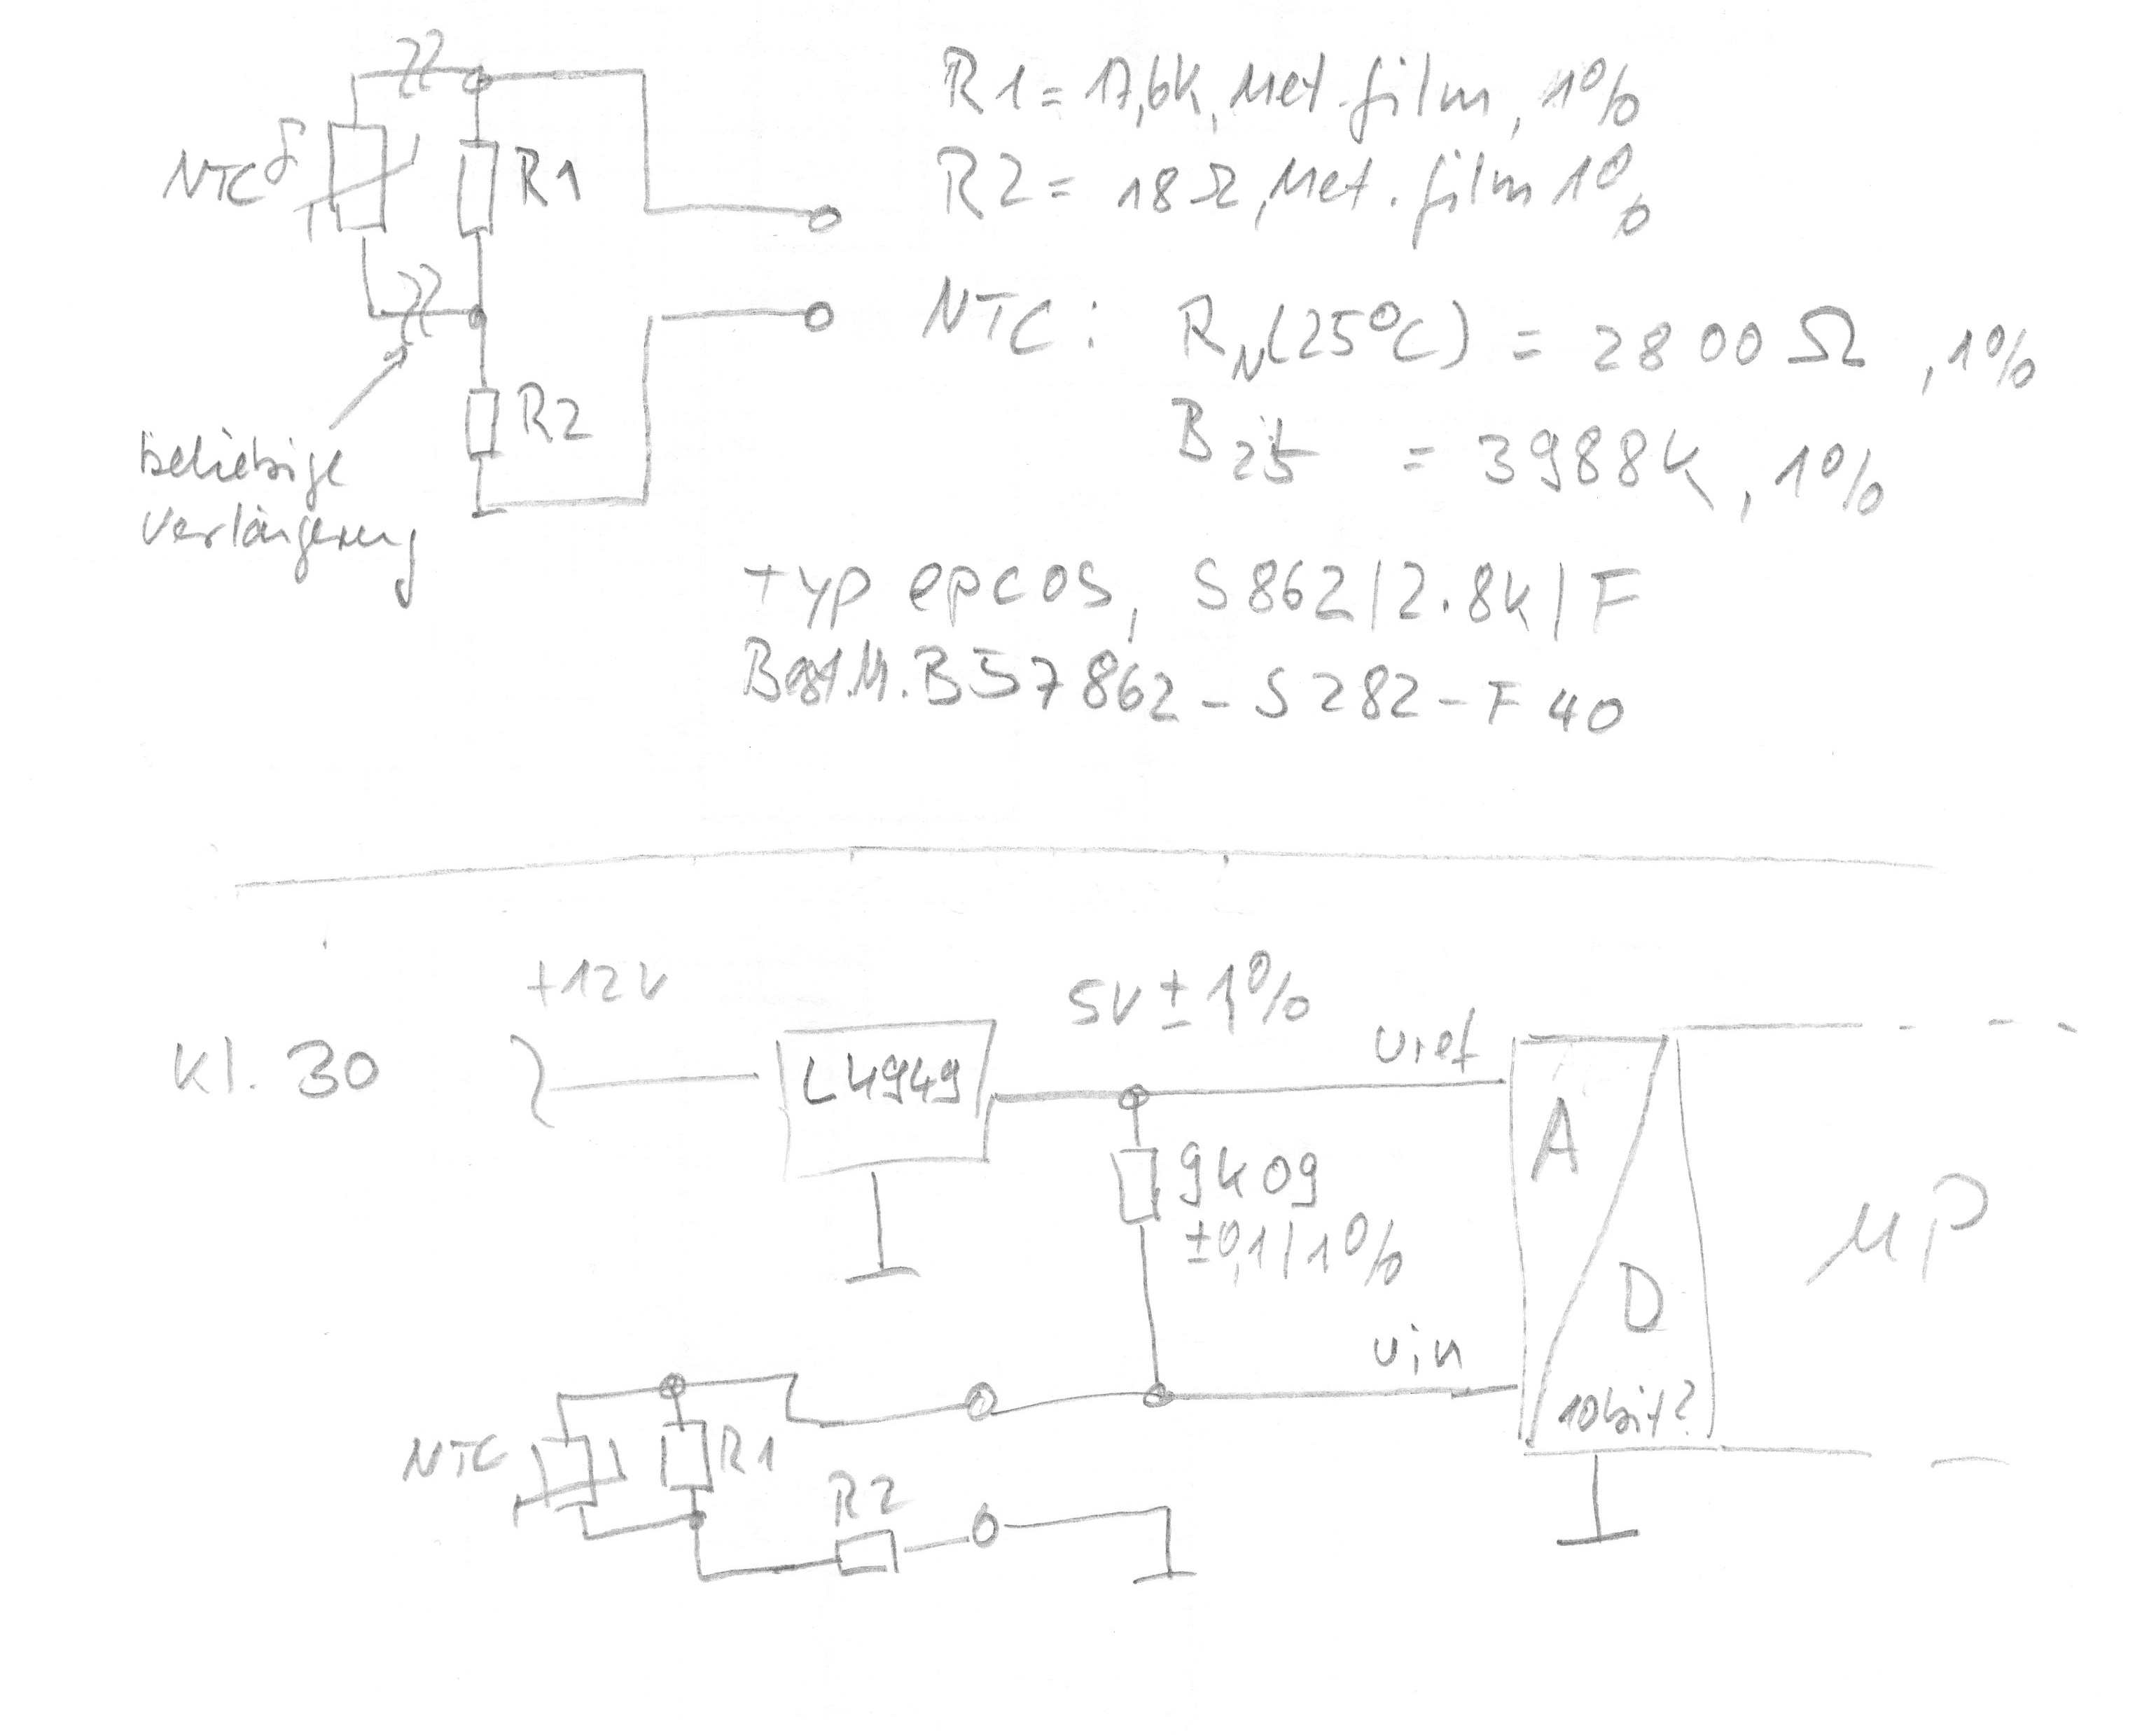 NTC
R1
R2
beliebige
Verlängerung
R1 = 17,6k, Met.film, 1%
R2 = 18Ω, Met.film 1%
NTC: RN(25°C) = 2800 Ω, 1%
B25 = 3988K, 1%
Typ epcos, S862/2.8k/F
B57862-S282-F40
+12V
Kl. 30
L4949
5V ± 1%
Uref
9k09
±0,1/1%
A
D
10bit?
µP
Uin
NTC
R1
R2